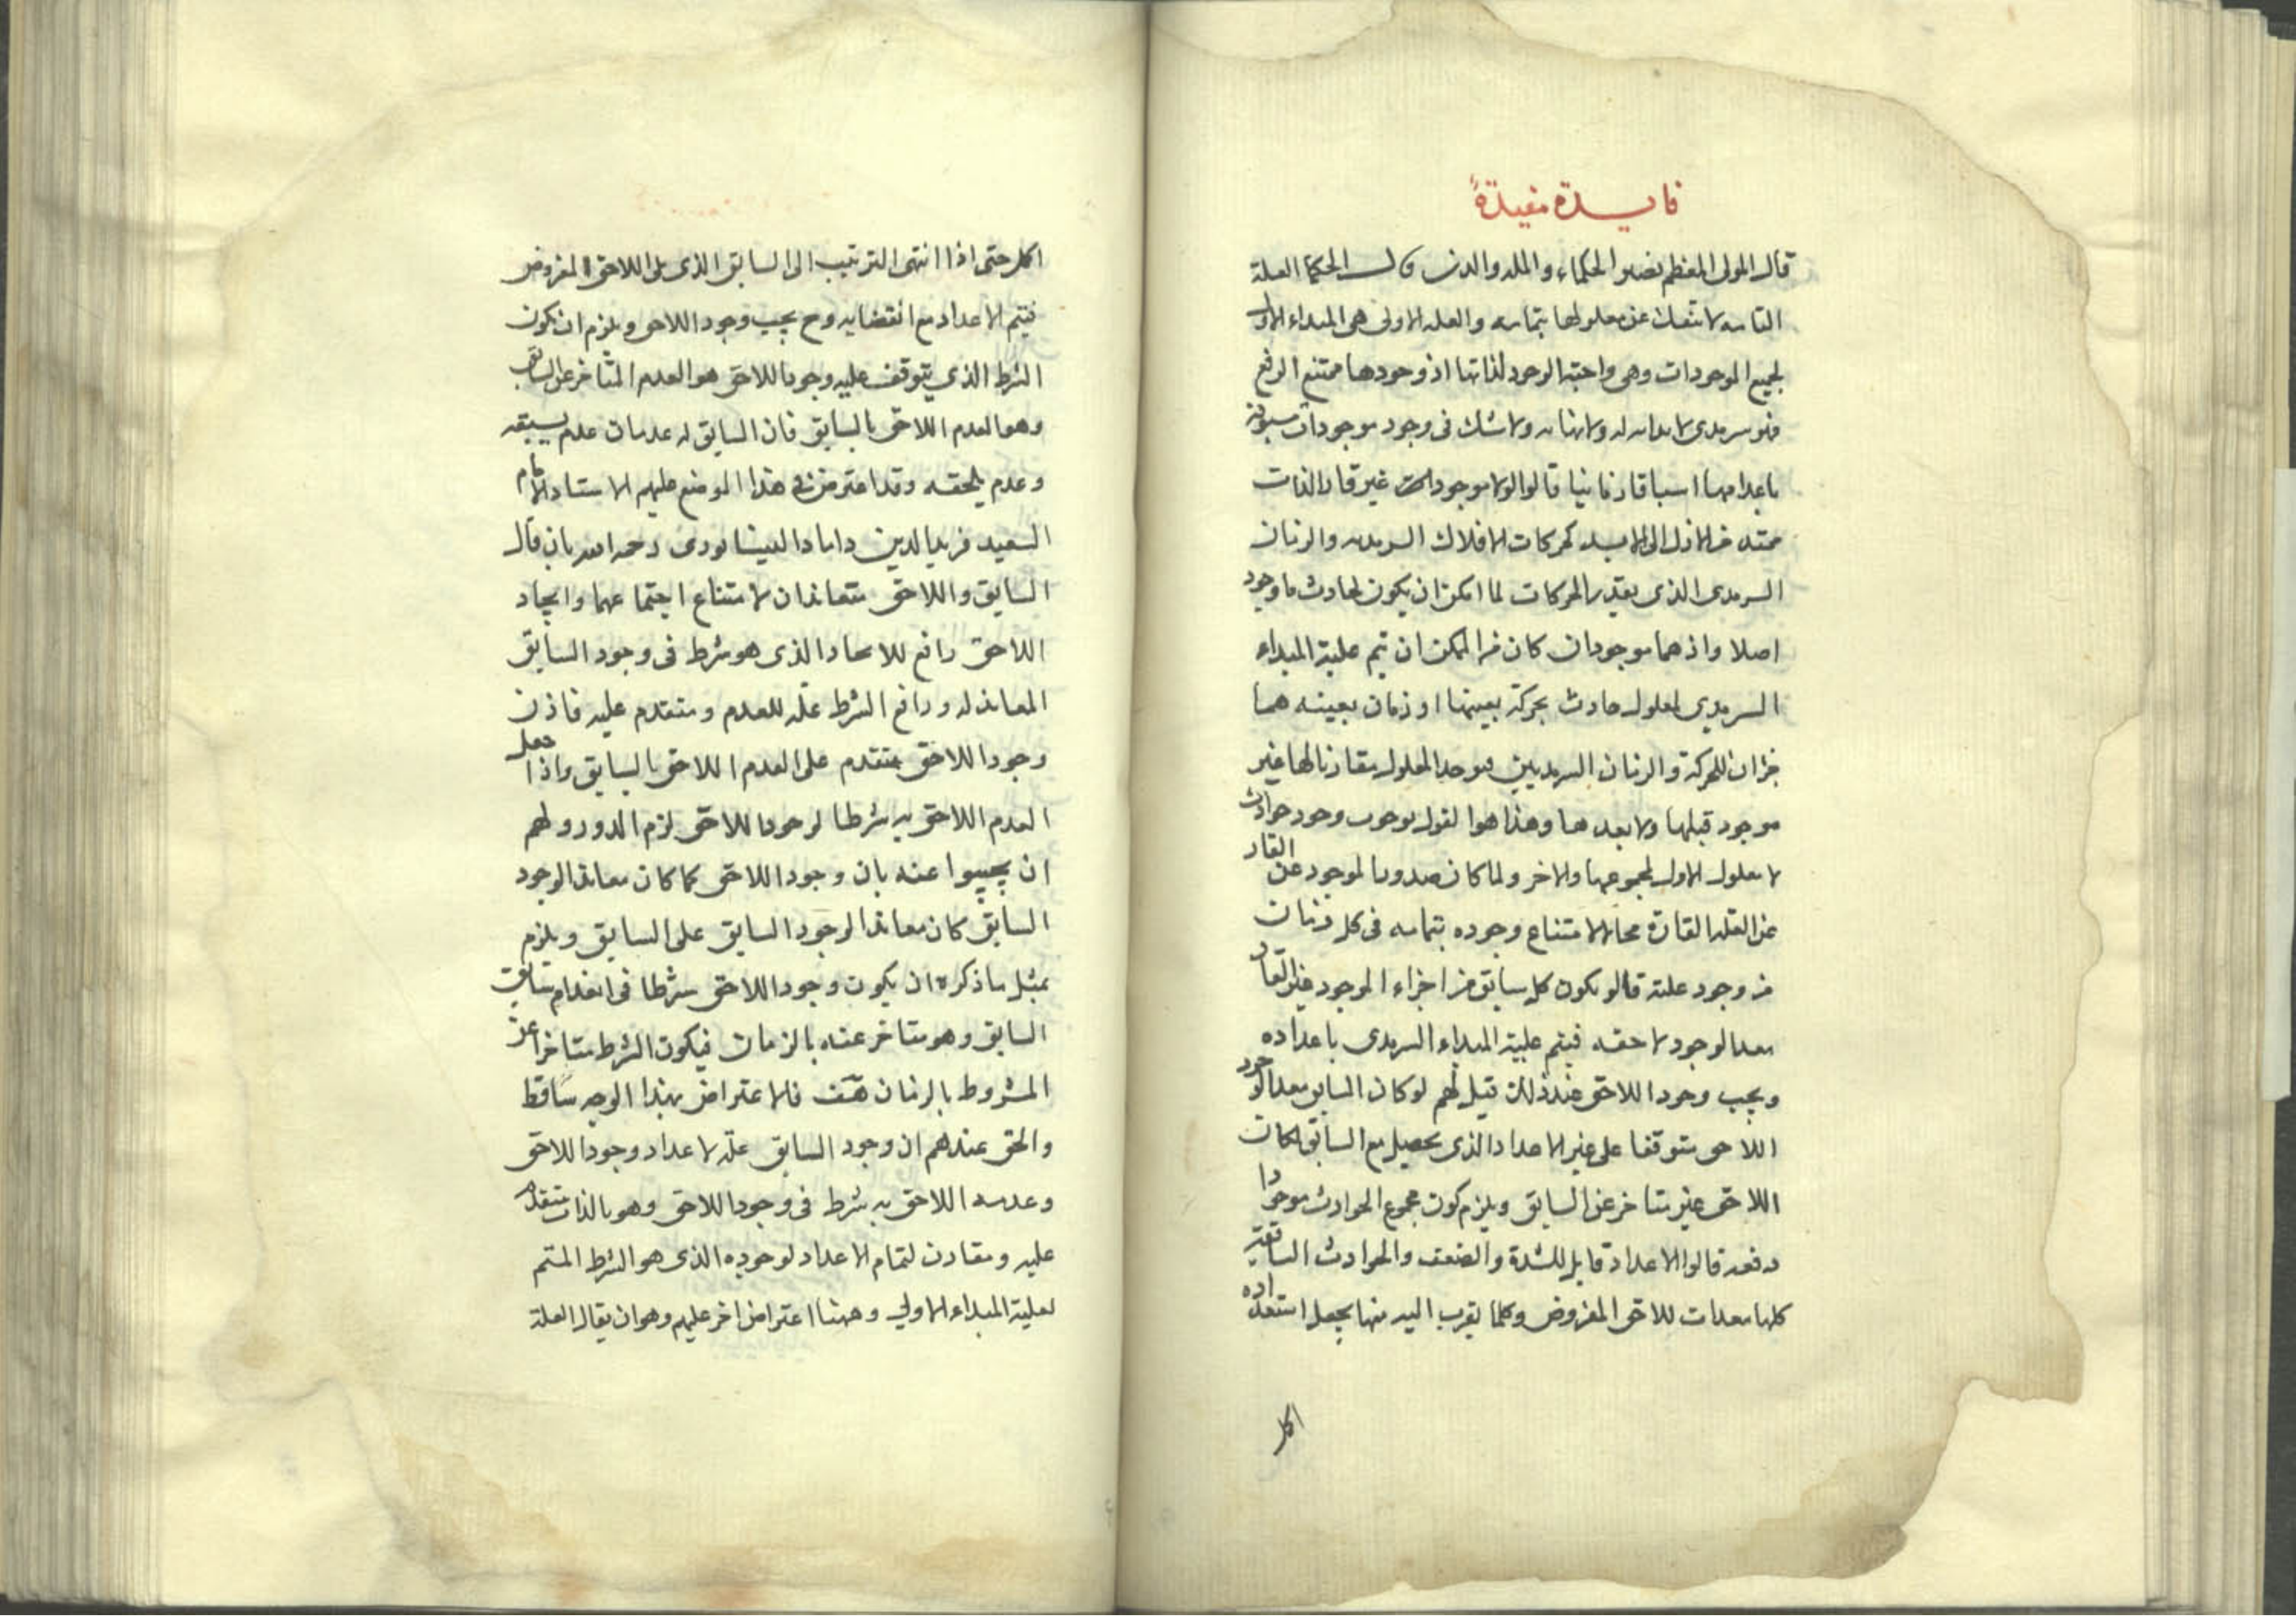 فايدة مفيدة
قال المولى المعظم نصير الحكماء والمله والدين قالـــ الحكما العلة
التامه لا تنفك عن معلولها بتمامه والعله الاولى هى المبداء الاول
لجميع الموجودات وهى واجبة الوجود لذاتها اذ وجودها ممتنع الرفع
فهو سرمدى لا بدايه له ولا نهايه ولا شك فى وجود موجودات مسبوقة
باعدامها اسباقا زمانيا قالوا لولا موجودات غير قار الذات
ممتد من الازل الى الابد كحركات الافلاك السرمديه والزمان
السرمدى الذى يقدر الحركات لما امكن ان يكون لحادث ما وجود
اصلا واذ هما موجودان كان من الممكن ان تتم علية المبداء
السرمدي لمعلول حادث بحركة بعينها او زمان بعينه هما
جزان للحركة والزمان السرمديين فيوجد المعلول مقارنا لها غير
موجود قبلها ولا بعدها وهذا هو القول بوجوب وجود حوادث
لا معلول الاول لمجموعها ولا اخر ولما كان صدور الموجود عن القار
عن العله القارة محالا لامتناع وجوده بتمامه فى كل زمان
من وجود علته قالو يكون كل سابق من اجزاء الموجود غير القار
معدا لوجود لاحقه فيتم علية المبداء السرمدى باعداده
ويجب وجود اللاحق عند ذلك قيل لهم لو كان السابق معدا لوجود
اللاحق متوقفا على غير الاعداد الذى يحصل مع السابق لكان
اللاحق غير متاخر عن السابق ويلزم كون مجموع الحوادث موجودا
دفعه قالوا الاعداد قابل للشدة والضعف والحوادث السابقة
كلها معدات للاحق المفروض وكلما يقرب اليه منها يجعل استعداده
اكمل
اكمل حتى اذا انتهى الترتيب الى السابق الذى يلى اللاحق المفروض
فيتم الاعداد مع انقضايه وح يجب وجود اللاحق ويلزم ان يكون
الشرط الذي يتوقف عليه وجود اللاحق هو العدم المتاخر عن السابق
وهو العدم اللاحق بالسابق فان السابق له عدمان عدم يسبقه
وعدم يلحقه وقد اعترض فى هذا الموضع عليهم الاستاد الامام
السعيد فريد الدين داماد النيشابورى رحمه الله بان قال
السابق واللاحق متعاندان لامتناع اجتماعهما وايجاد
اللاحق رافع للاىحاد الذى هو شرط فى وجود السابق
المعاند له ورافع الشرط علّه للعدم ومتقدم عليه فاذن
وجود اللاحق متقدم على العدم اللاحق بالسابق واذا جعل
العدم اللاحق به شرطا لوجود اللاحق لزم الدور ولهم
ان يجيبوا عنه بان وجود اللاحق كما كان معاند الوجود
السابق كان معاندا لوجود السابق على السابق ويلزم
بمثل ما ذكره ان يكون وجود اللاحق شرطا فى انعدام سابق
السابق وهو متاخر عنه بالزمان فيكون الشرط متاخرا عن
المشروط بالزمان هف فالاعتراض بهذا الوجه ساقط
والحق عندهم ان وجود السابق علّه لاعداد وجود اللاحق
وعدمه اللاحق به شرط فى وجود اللاحق وهو بالذات متقدم
عليه ومقارن لتمام الاعداد لوجوده الذى هو الشرط المتمم
لعلية المبداء الاولي وههنا اعتراض اخر عليهم وهو ان يقال العلة